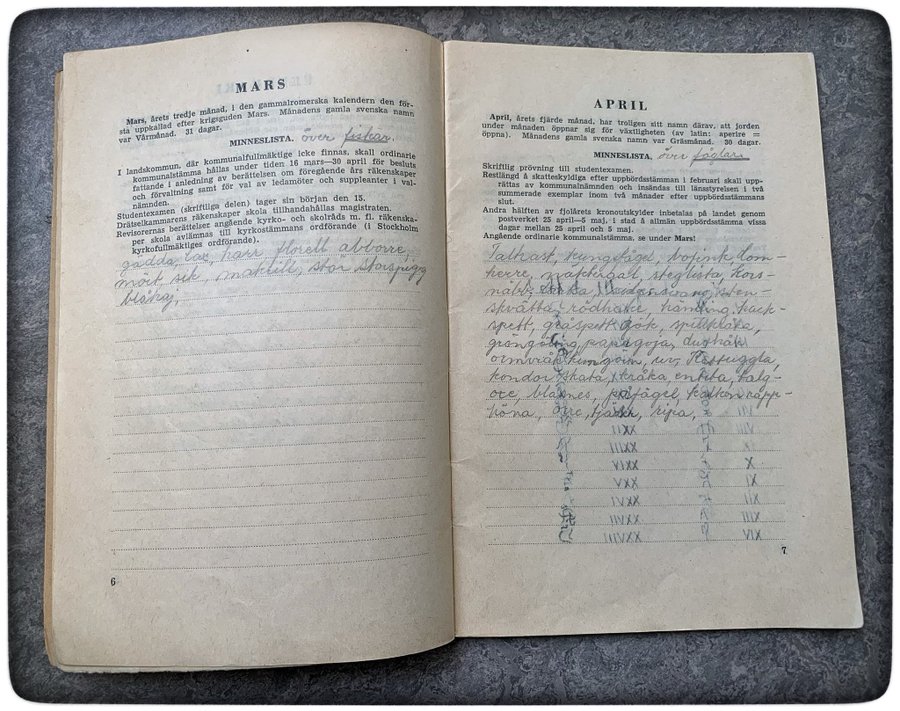 MARS
Mars, årets tredje månad, i den gammalromerska kalendern den för-
sta uppkallad efter krigsguden Mars. Månadens gamla svenska namn
var Vårmånad. 31 dagar.
MINNESLISTA. över fiskar.
I landskommun, där kommunalfullmäktige icke finnas, skall ordinarie
kommunalstämma hållas under tiden 16 mars—30 april för besluts
fattande i anledning av berättelsen om föregående års räkenskaper
och förvaltning samt för val av ledamöter och suppleanter i val-
nämnden.
Studentexamen (skriftliga delen) tager sin början den 15.
Drätselkammarens räkenskaper skola tillhandahållas magistraten.
Revisorernas berättelser angående kyrko- och skolråds m. fl. räkenska-
per skola avlämnas till kyrkostämmans ordförande (i Stockholm
kyrkofullmäktiges ordförande).
gädda, lax, harr, forell abborre,
mört, sik, makrill, stör storspigg
blåhaj,
6
APRIL
April, årets fjärde månad, har troligen sitt namn därav, att jorden
under månaden öppnar sig för växtligheten (av latin: aperire =
öppna). Månadens gamla svenska namn var Gräsmånad. 30 dagar.
MINNESLISTA. över fåglar
Skriftlig prövning till studentexamen.
Restlängd å skatteskyldiga efter uppbördsstämman i februari skall upp-
rättas av kommunalnämnden och insändas till länsstyrelsen i två
summerade exemplar inom två månader efter uppbördsstämmans
slut.
Andra hälften av fjolårets kronoutskylder inbetalas på landet genom
postverket 25 april—5 maj, i stad å allmän uppbördsstämma vissa
dagar mellan 25 april och 5 maj.
Angående ordinarie kommunalstämma, se under Mars!
Tallrast, kungsfågel, bofink Dom-
herre, näktergal, steglista, kors-
näbb, sten-
skvätta, rödhake, hack-
spett, gråspett gök, spillkråka,
gröngöling, papegoja, duvhök
ormvråk kungsörn, uv,
kondor skata, kråka, talg-
oxe, blåmes, påfågel kalkon rapp-
höna, orre, tjäder, ripa,
VII
VIII XXII
XXIII
X XXIV
XI XXV
XII XXVI
XIII XXVII
XIV XXVIII
7